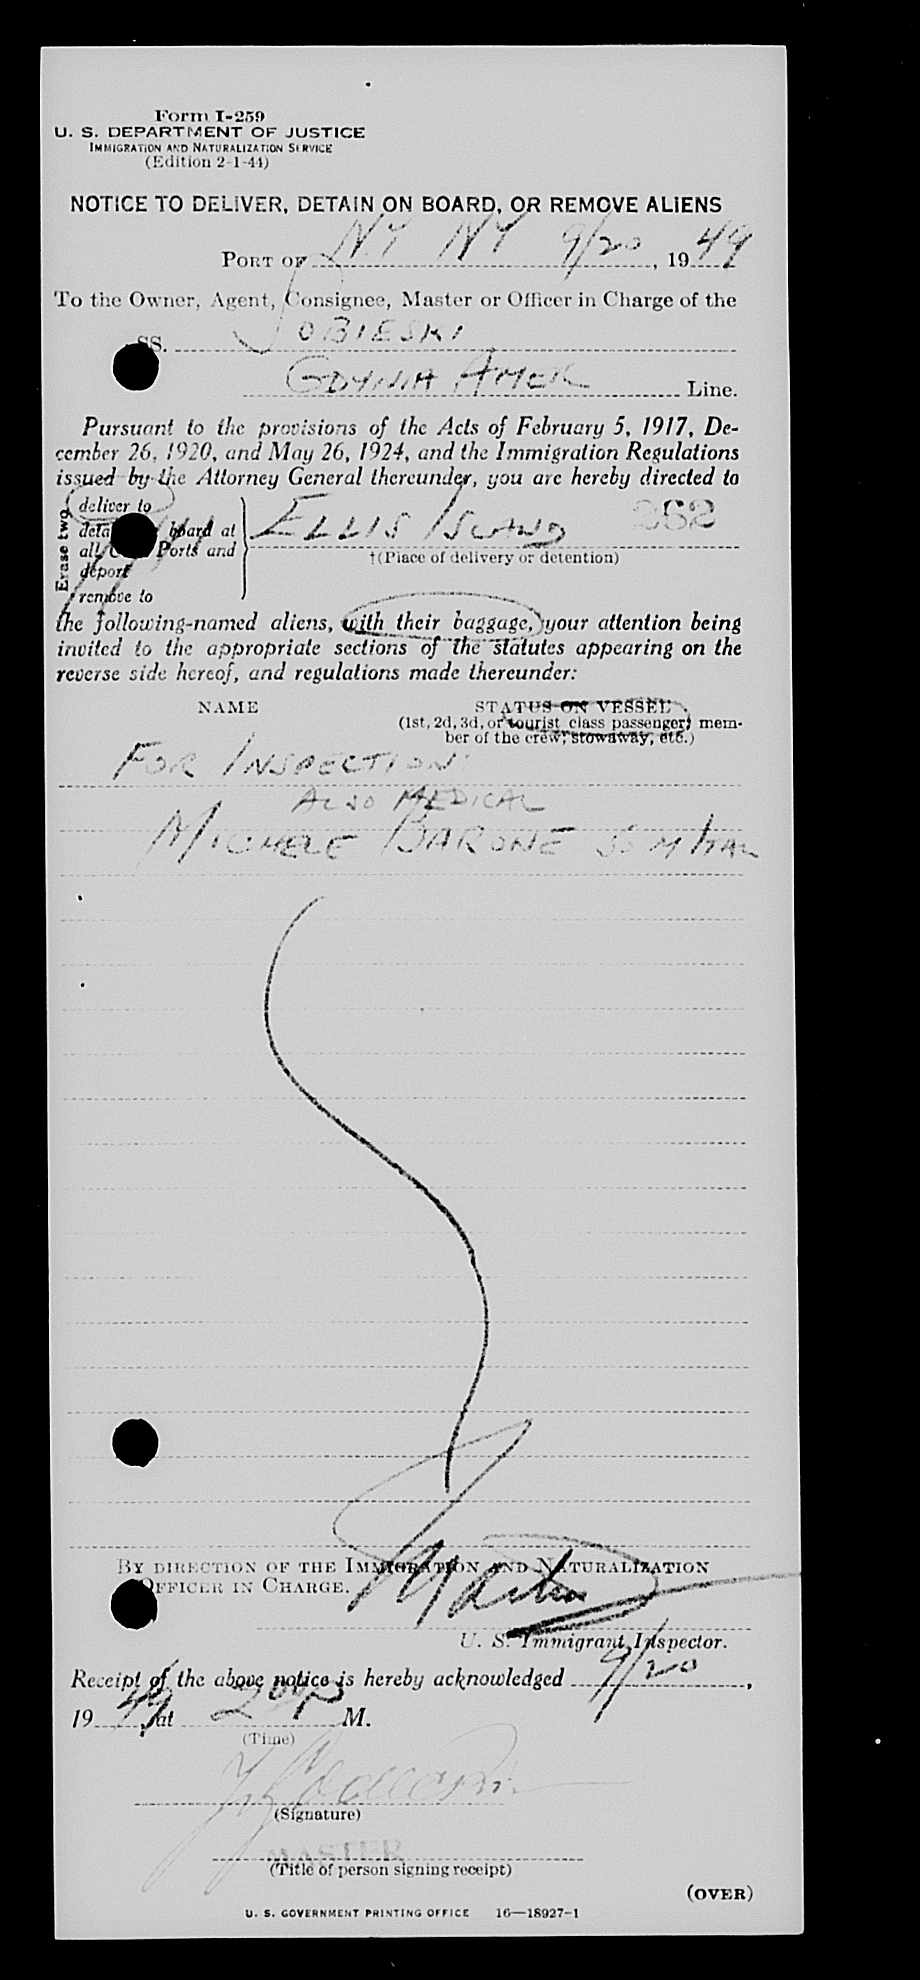 Form I-259
U. S. DEPARTMENT OF JUSTICE
IMMIGRATION AND NATURALIZATION SERVICE
(Edition 2-1-44)
NOTICE TO DELIVER, DETAIN ON BOARD, OR REMOVE ALIENS
PORT OF NY NY 9/20, 1949
To the Owner, Agent, Consignee, Master or Officer in Charge of the
SS. SOBIESKI
GDYNIA AMER Line.
Pursuant to the provisions of the Acts of February 5, 1917, De-
cember 26, 1920, and May 26, 1924, and the Immigration Regulations
issued by the Attorney General thereunder, you are hereby directed to
Erase two
deliver to
board at
all Ports and
deport
remove to
ELLIS ISLAND 282
†(Place of delivery or detention)
the following-named aliens, with their baggage, your attention being
invited to the appropriate sections of the statutes appearing on the
reverse side hereof, and regulations made thereunder:
NAME STATUS ON VESSEL
(1st, 2d, 3d, or tourist class passenger, mem-
ber of the crew, stowaway, etc.)
FOR INSPECTION
ALSO MEDICAL
MICHELE BARONE 55 M ITAL
BY DIRECTION OF THE IMMIGRATION AND NATURALIZATION
OFFICER IN CHARGE.
U. S. Immigrant Inspector.
Receipt of the above notice is hereby acknowledged 9/20,
1949, at 2 00 P M.
(Time)
(Signature)
MASTER
(Title of person signing receipt)
(OVER)
U. S. GOVERNMENT PRINTING OFFICE 16—18927-1